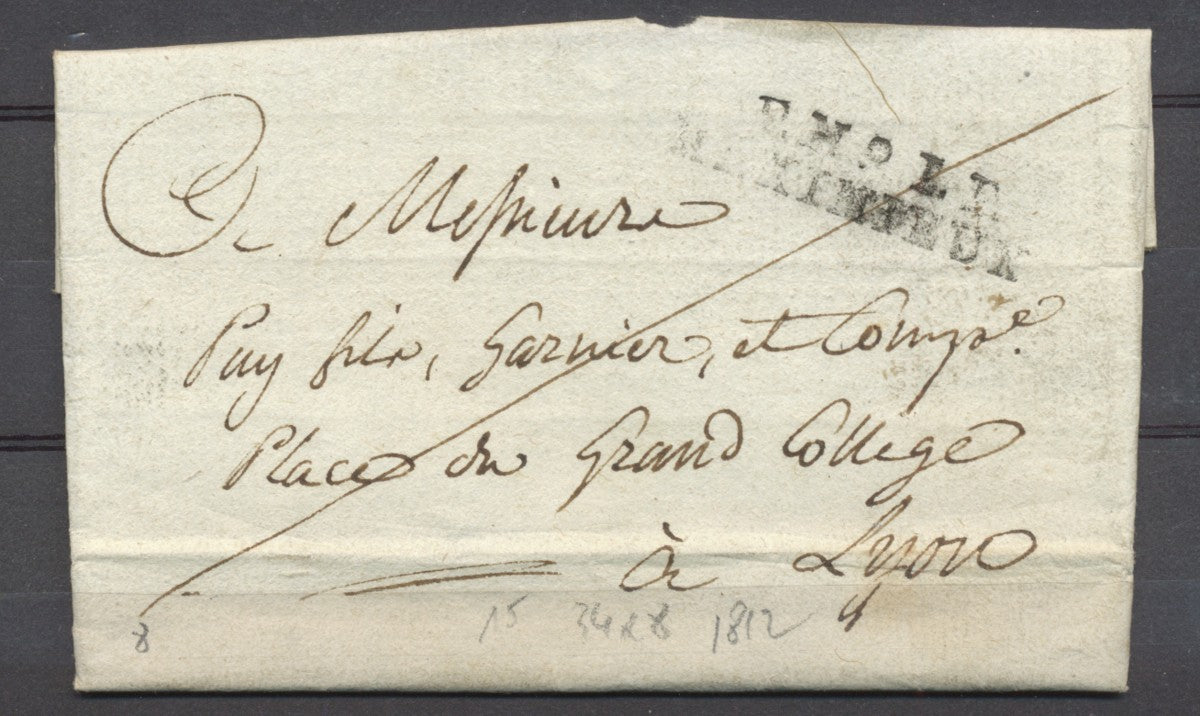 EMOLE
MEXIMIEUX
A Messieurs
Puy fils, Garnier, et Compe.
Place du Grand College
à Lyon
8 15 34x8 1812